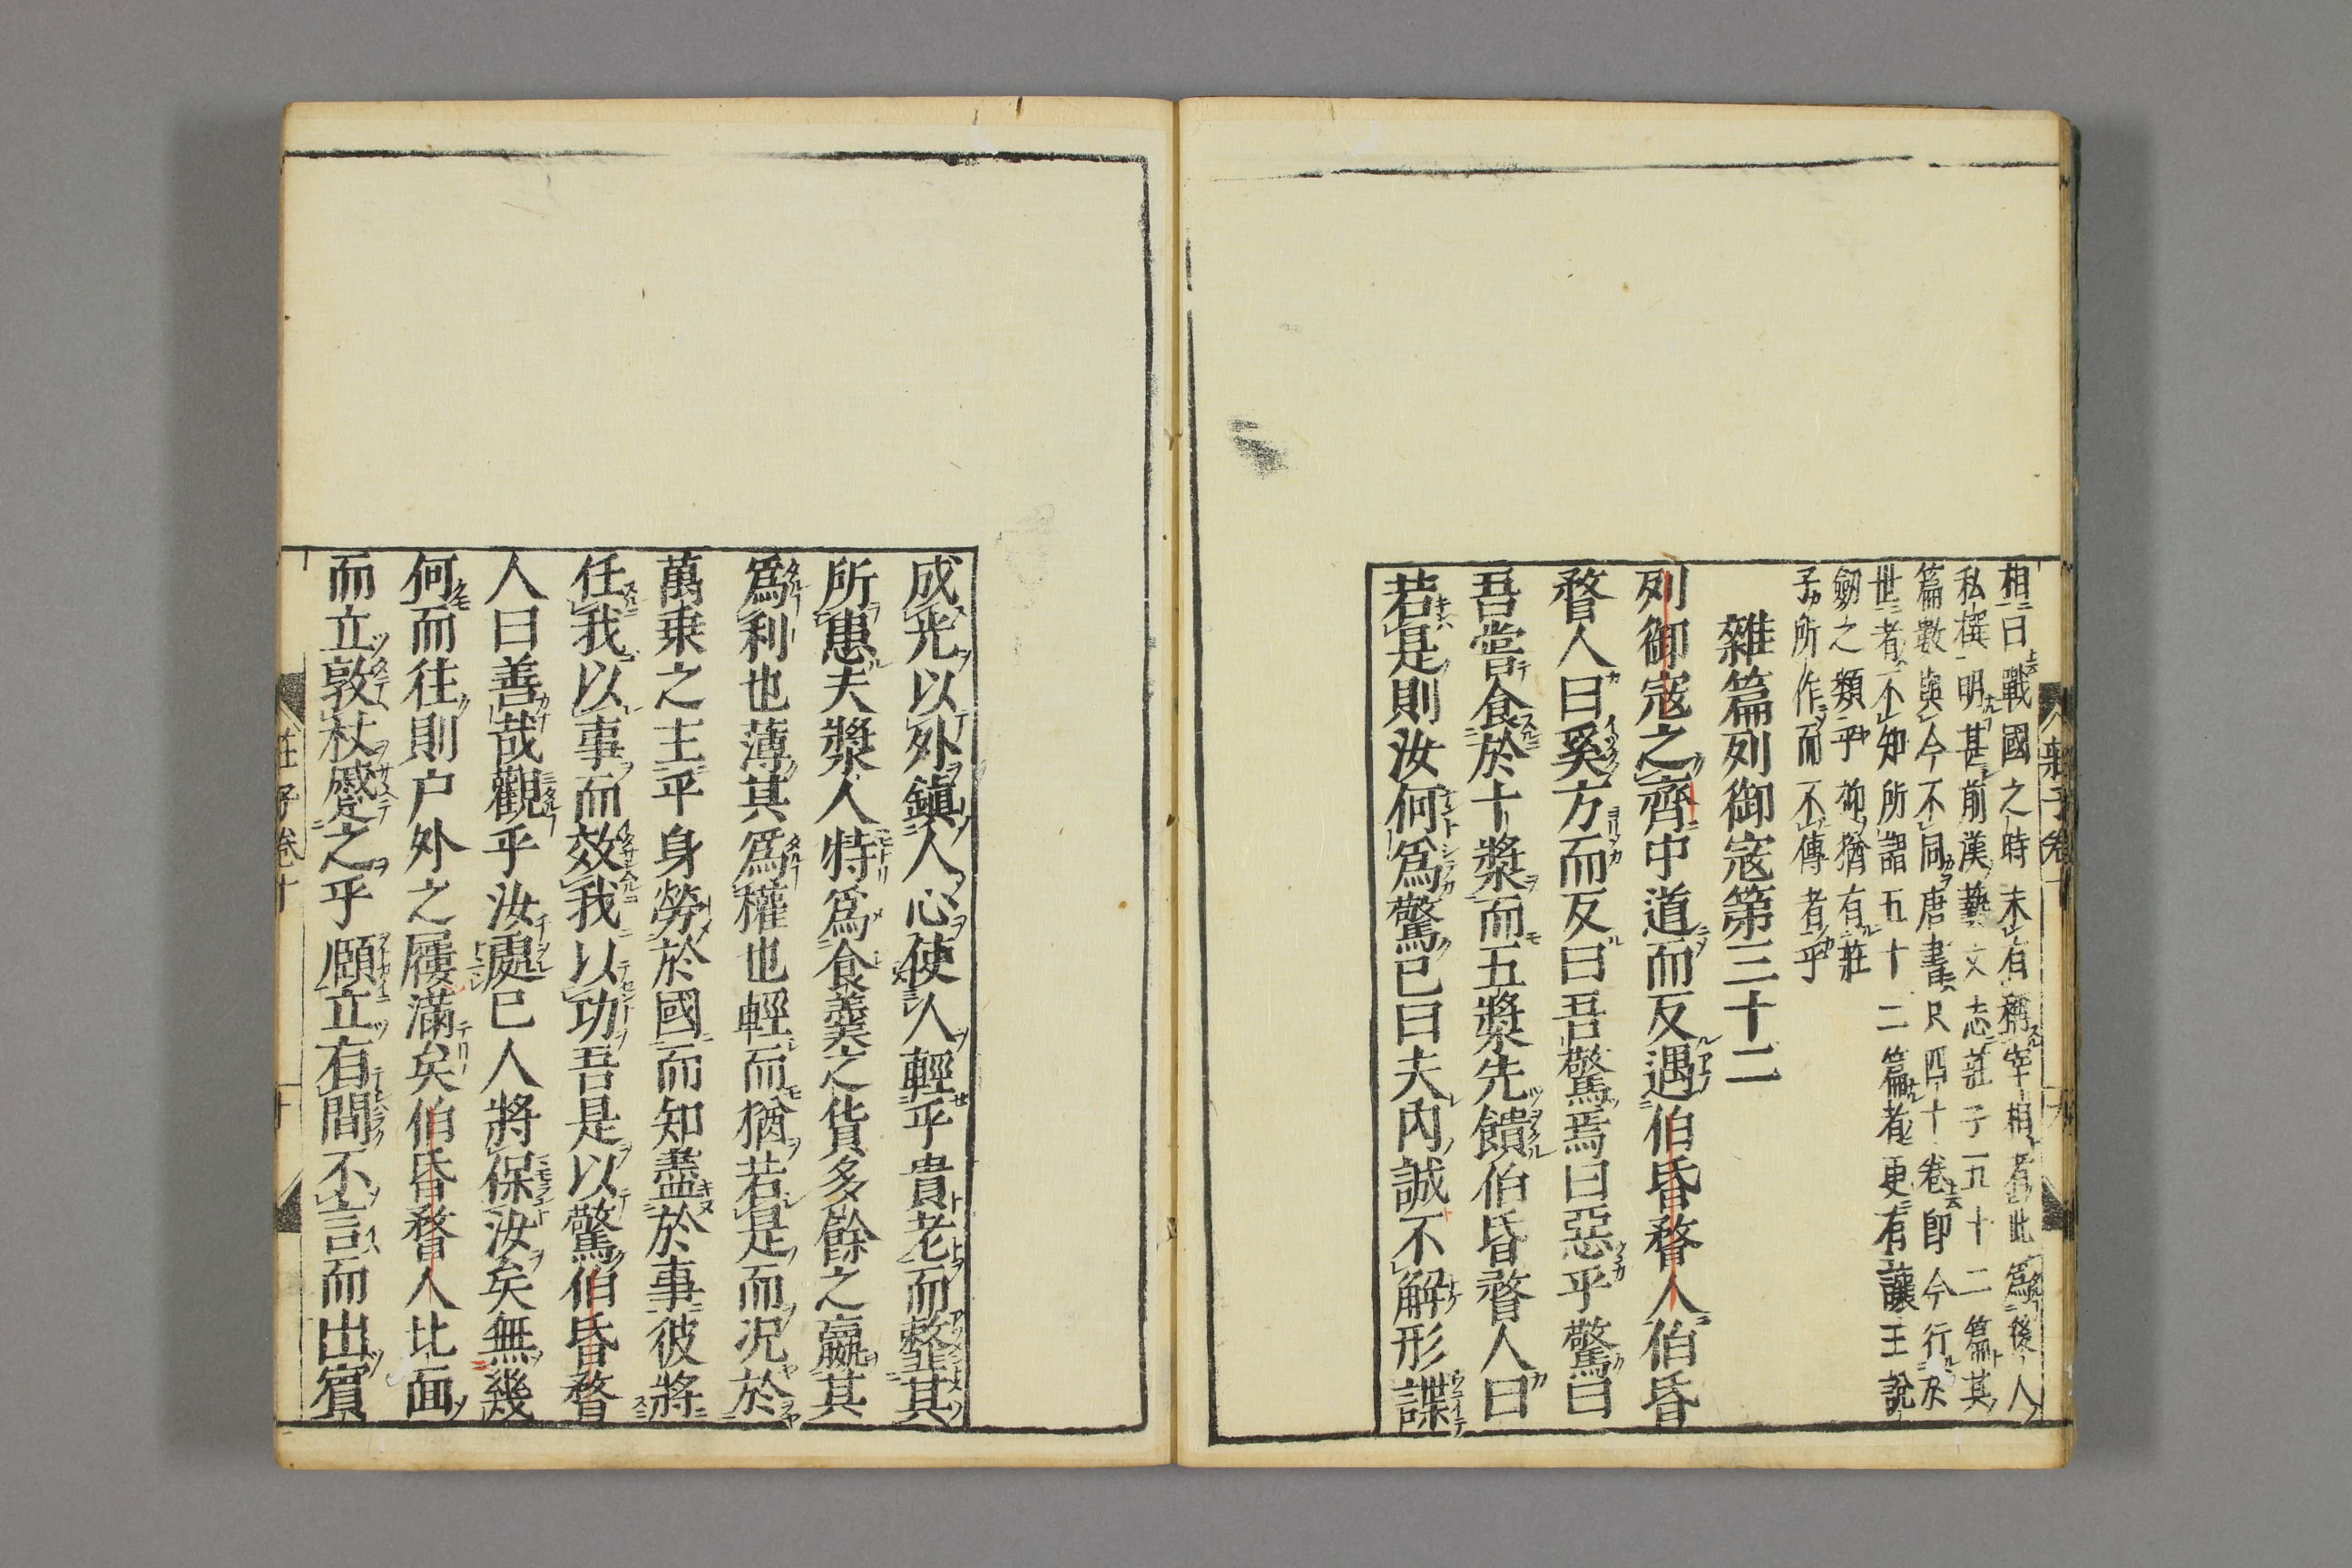 相曰戰國之時未有稱宰相者此爲後人
私撰明甚前漢藝文志莊子五十二篇其
篇數與今不同唐書尺四十卷即今行尔
世者不知所謂五十二篇者更有讓王説
劔之類乎抑猶有莊
子所作而不傳者乎
雜篇列御寇第三十二
列御寇之齊中道而反遇伯昏瞀人伯昏
瞀人曰奚方而反曰吾驚焉曰惡乎驚曰
吾嘗食於十漿而五漿先饋伯昏瞀人曰
若是則汝何爲驚已曰夫内誠不解形諜
成光以外鎮人心使人輕乎貴老而䪠其
所患夫漿人特爲食羹之貨多餘之贏其
爲利也薄其爲權也輕而猶若是而况於
萬乗之主乎身勞於國而知盡於事彼將
任我以事而效我以功吾是以驚伯昏瞀
人曰善哉觀乎汝處已人將保汝矣無幾
何而往則户外之屨滿矣伯昏瞀人北面
而立敦杖蹙之乎頤立有間不言而出賓
莊子卷十
十